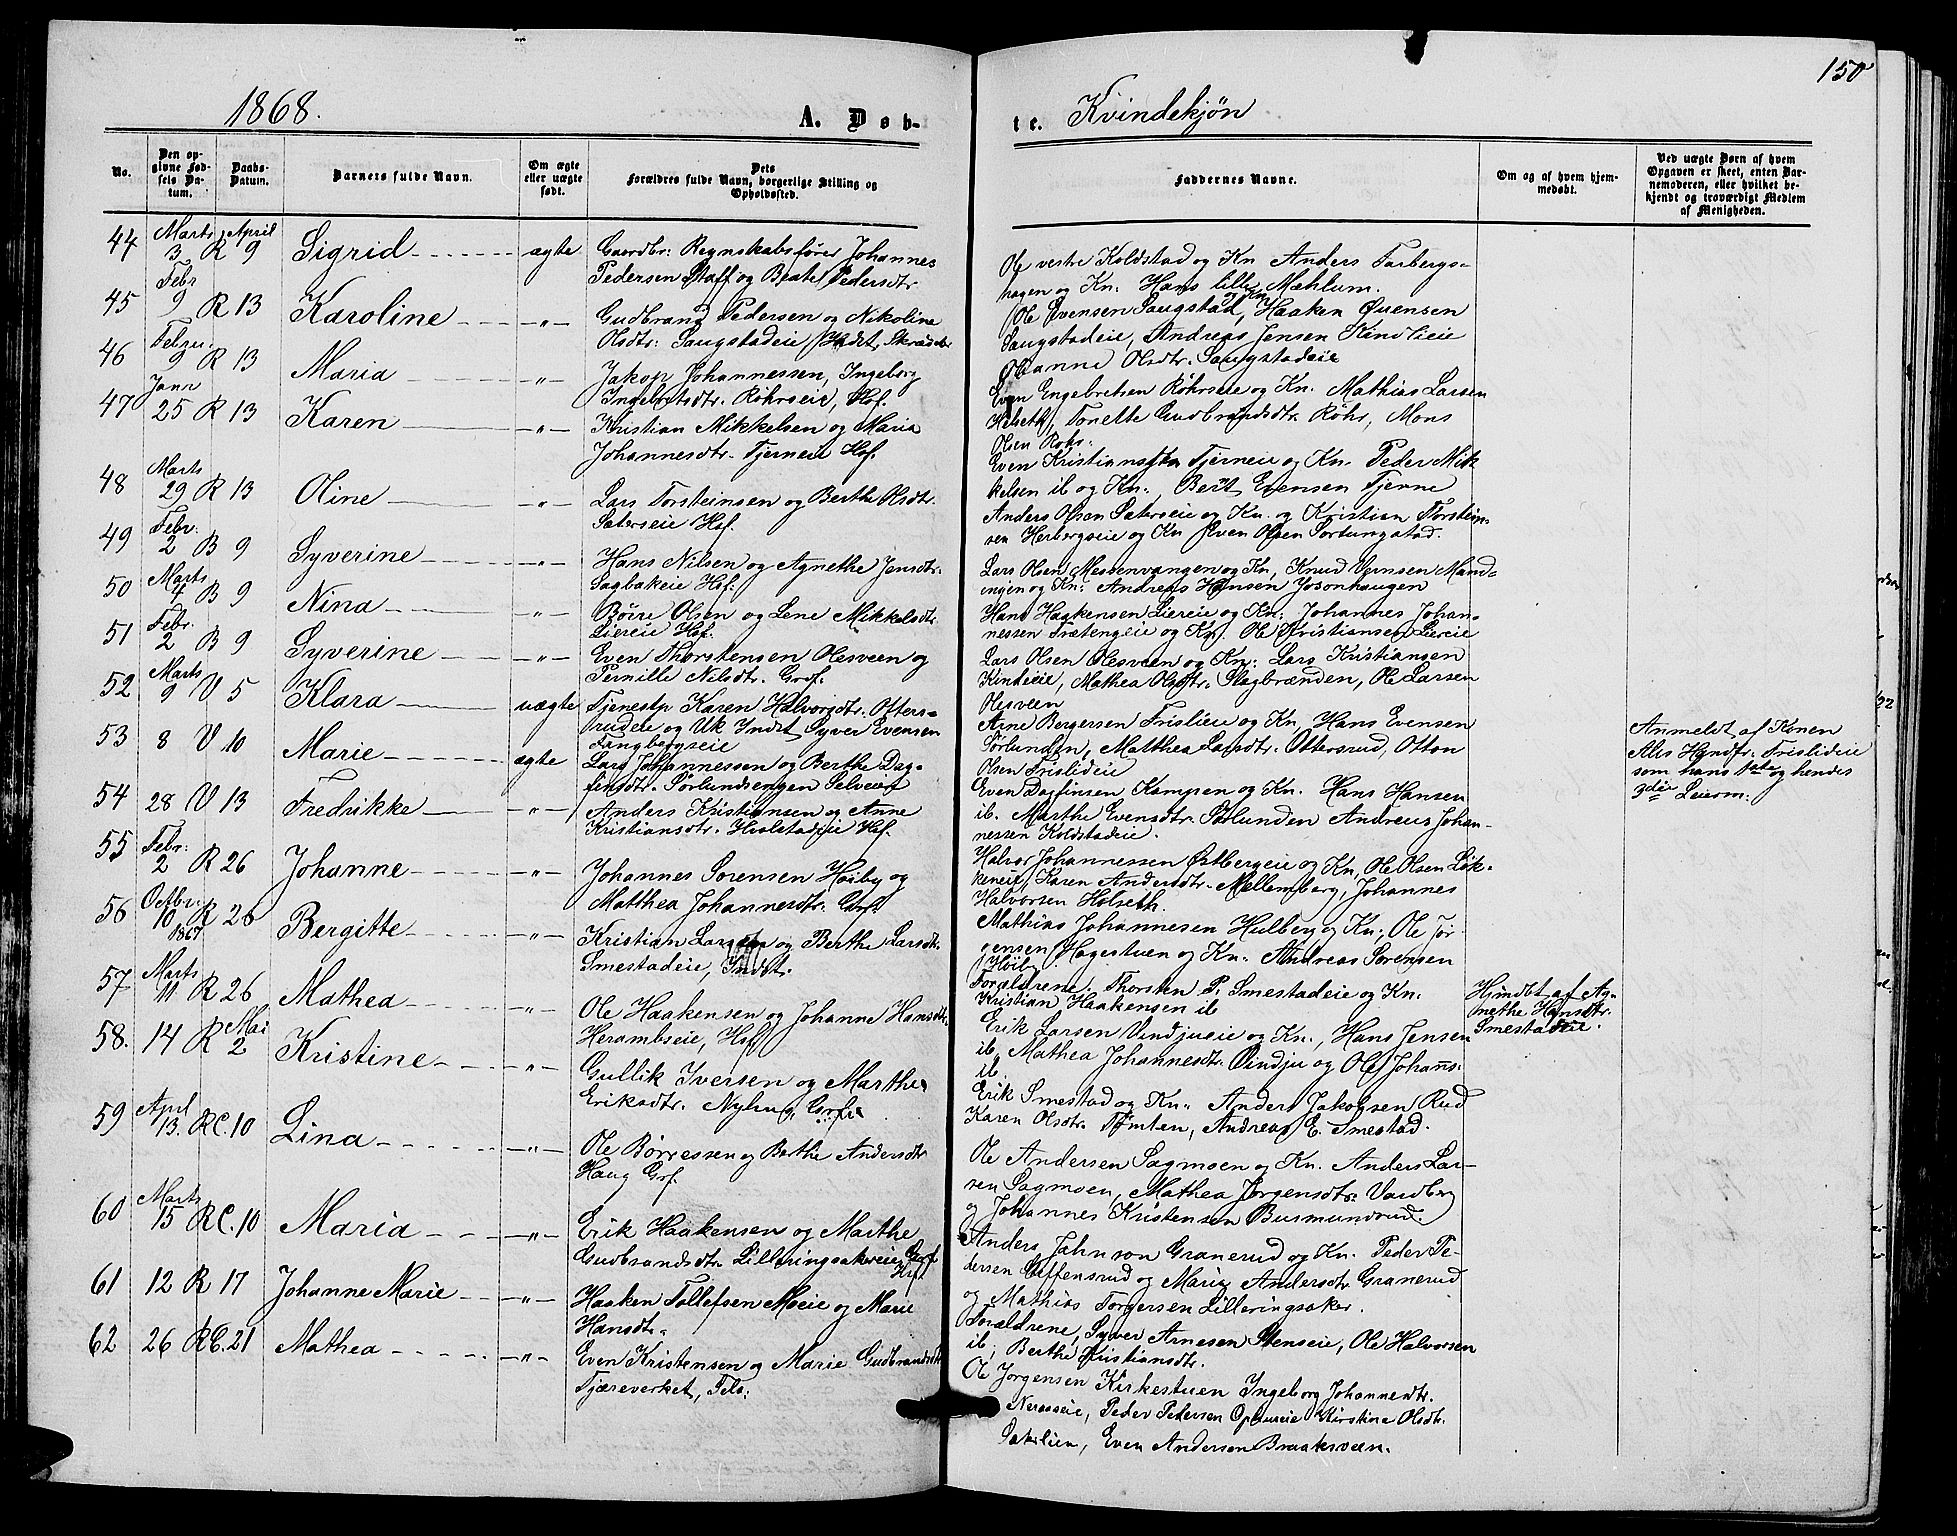 150
1868.
A. Døb-
te. Kvindekjøn
No.
Den op-
givne Fød-
sels Da-
tum.
Daabs-
Datum.
Barnets fulde Navn.
Om ægte
eller uægte
født.
Dets
Forældres fulde Navn, borgerlige Stilling og
Opholdssted.
Faddernes Navne.
Om og af hvem hjem-
medøbt.
Ved uægte Børn af hvem
Opgaven er skeet, enten Bar-
nemoderen, eller hvilket be-
kjendt og troværdigt Medlem
af Menigheden.
44 Marts 3 R April 9 Sigrid ægte Gaardbr: Regnskabsfører Johannes
Pedersen Staff og Beate Pedersdtr.
Ole vestre Koldstad og Kn Anders Farbergs-
hagen og Kn: Hans lille Mæhlum.
45 Febr 9 R 13 Karoline -"- Gudbrand Pedersen og Nikoline
Olsdtr: Saugstadeie Indst.
Ole Evensen Saugstad, Haaken
Saugstadeie, Andreas Jensen Kindlieie
Olsdtr. Saugstadeie
46 Febru: 9 R 13 Maria -"- Jakop Johannessen, Ingeborg
Ingebretsdtr. Röhrseie, Hof.
Even Engebretsen Röhrseie og Kn. Mathias Larsen
Helseth, Tonette Gudbrandsdtr. Röhr, Mons
Olsen Röhr.
47 Janr 25 R 13 Karen -"- Kristian Mikkelsen og Maria
Johannesdtr. Tjerneie Hof.
Even Kristiansen Tjerneie og Kn. Peder Mik
kelsen ib og Kn:, Bert Evensen Tjerne
48 Marts 29 R 13 Oline -"- Lars Torsteinsen og Berthe Olsdtr.
Saterseie Hof.
Anders Olsen Saterseie og Kn. og Kristian Torstein-
sen Herbergseie og Kn Even Olsen Sortungstad.
49 Febr. 2 B 9 Syverine -"- Hans Nilsen og Agnethe Jensdtr.
Sagbakeie Hof.
Lars Olsen Messenvangen og Kn, Knud
og Kn: Andreas Hansen
50 Marts 4 B 9 Nina -"- Børre Olsen og Lene Mikkelsdtr
Liereie Hof.
Hans Haakensen Liereie og Kn: Johannes Johan-
nessen Trætengeie og Kn. Ole Kristiansen Liereie
51 Febr. 2 B 9 Syverine -"- Even Thorstensen Olesveen og
Pernille Nilsdtr. Grof.
Lars Olsen Olesveen og Kn: Lars Kristiansen
Kindeie, Mathea Olsdtr. Slagbrænden, Ole Larsen
Olesveen
52 Marts 9 V 5 Klara uægte Tjenestp Karen Halvorsdtr. Otters-
rudeie og Uk Indst Syver Evensen
Fangbergseie
Arne Bergersen Frislieie og Kn, Hans Evensen
Sörlunden, Matthea Larsdtr. Ottersrud, Otton
Olsen Frislideie
Anmeldt af Konen
Frislideie
som hans 1ste og hendes
3die Leierm:
53 8 V 10 Marie ægte Lars Johannessen og Berthe Dag-
finsdtr. Sörlundsengen Selveier
Even Dagfinsen Kampen og Kn. Hans Hansen
ib. Marthe Evensdtr. Sörlunden Andreas Johan-
nessen Koldstadeie.
54 28 V 13 Fredrikke -"- Anders Kristiansen og Anne
Kristiansdtr. Hvalstadeie Hof.
Halvor Johannessen Østbergeie og Kn, Ole Olsen Løk-
keneie, Karen Andersdtr. Mellemberg, Johannes
Halvorsen Holseth.
55 Febr: 2 R 26 Johanne -"- Johannes Sorensen Höiby og
Matthea Johannesdtr. Grf.
Mathias Johannesen Hulberg og Kn; Ole Jör
gensen Hagestuen og Kn: Andreas Sorensen
Höiby
56 Octbr. 10 1867 R 26 Bergitte -"- Kristian Larsen og Berthe Larsdtr.
Smestadeie, Indst.
Forældrene. Thorsten P. Smestadeie og Kn.
Kristian Haakensen ib
Hjmdbt af Ag-
nethe Hansdtr.
Smestadeie.
57 Marts 11 R 26 Mathea -"- Ole Haakensen og Johanne Hansdtr.
Herambseie, Hof
Erik Larsen Vindjueie og Kn., Hans Jensen
ib, Mathea Johannesdtr. Vindju og Ole Johans.
ib.
58. 14 R Mai 2 Kristine -"- Gullik Iversen og Marthe
Eriksdtr. Nyhus, Grf.
Erik Smestad og Kn. Anders Jakobsen Rud
Karen Olsdtr. Tömten, Andreas E. Smestad.
59 April 13. RC. 10 Lina -"- Ole Børresen og Berthe Andersdtr
Haug Grf.
Ole Andersen Sagmoen og Kn. Anders Lar-
sen Sagmoen, Mathea Jørgensdtr. Vardberg
og Johannes Kristensen Burmundrud.
60 Marts 15 RC. 10 Maria -"- Erik Haakensen og Marthe
Gudbrandsdtr. Lilleringsakereie Grf
Anders Jahnson Granerud og Kn. Peder Pe-
dersen Steffensrud og Marie Andersdtr Granerud
og Mathias Torgersen Lilleringsaker.
61 12 R 17 Johanne Marie -"- Haaken Tollefsen Moeie og Marie
Hansdtr. Hof
Forældrene, Syver Arnesen Stenseie, Ole Halvorsen
ib, Berthe Kristiansdtr.
62 26 RC. 21 Mathea -"- Even Kristensen og Marie Gudbrandsdtr
Tjæreverket, Fels:
Ole Jorgensen Kirkestuen Ingeborg Johannesdtr.
Neraaseie, Peder Petersen Ophuseie Kirstine Olsdtr.
Saterlien, Even Andersen Braaksveen.